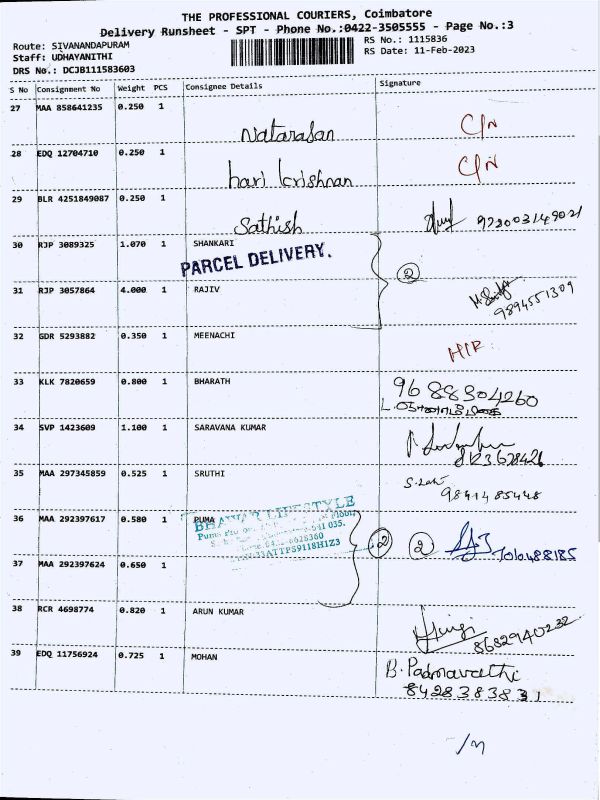 THE PROFESSIONAL COURIERS, Coimbatore
Delivery Runsheet - SPT - Phone No.:0422-3505555 - Page No.:3
Route: SIVANANDAPURAM RS No.: 1115836
Staff: UDHAYANITHI RS Date: 11-Feb-2023
DRS No.: DCJB111583603
S No Consignment No Weight PCS Consignee Details Signature
27 MAA 858641235 0.250 1
Natarasan C/N
28 EDQ 12704710 0.250 1
hari krishnan C/N
29 BLR 4251849087 0.250 1
Sathish
30 RJP 3089325 1.070 1 SHANKARI
PARCEL DELIVERY. 2
31 RJP 3057864 4.000 1 RAJIV
9894551309
32 GDR 5293882 0.350 1 MEENACHI
33 KLK 7820659 0.800 1 BHARATH 9688304260
34 SVP 1423609 1.100 1 SARAVANA KUMAR
8123628426
35 MAA 297345859 0.525 1 SRUTHI
9841485448
BHAWAR LIFESTYLE
36 MAA 292397617 0.580 1 PUMA
2 2
37 MAA 292397624 0.650 1
38 RCR 4698774 0.820 1 ARUN KUMAR
8682940232
39 EDQ 11756924 0.725 1 MOHAN B. Padmavathi
8428383831